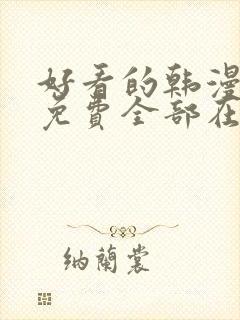 好看的韩漫
免費全部在
纳蘭裳